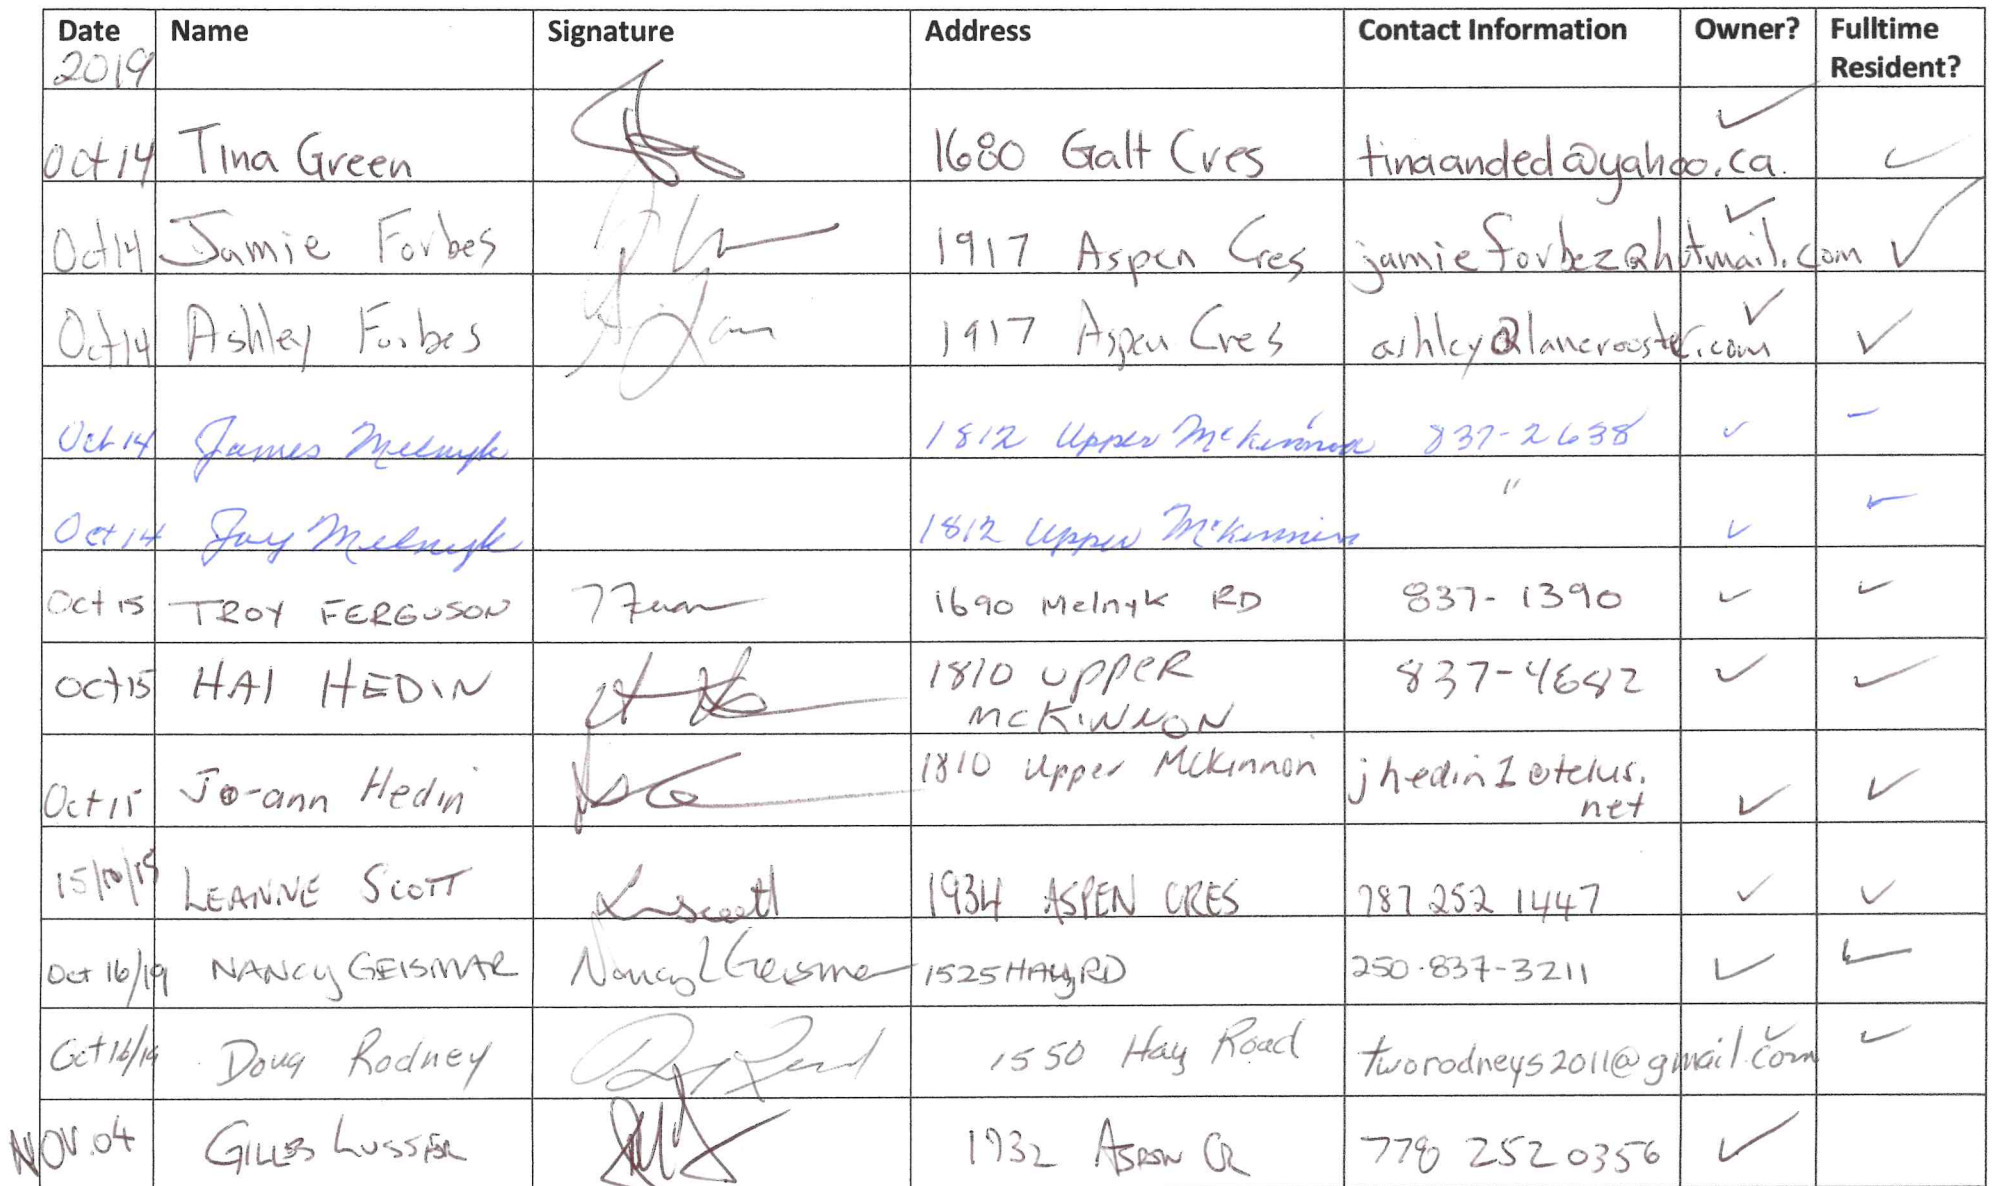 Date Name Signature Address Contact Information Owner? Fulltime Resident?
2019
Oct 14 Tina Green 1680 Galt Cres tinaanded@yahoo.ca. ✓ ✓
Oct 14 Jamie Forbes 1917 Aspen Cres jamieforbez@hotmail.com ✓ ✓
Oct 14 Ashley Forbes 1917 Aspen Cres ashley@lanerooster.com ✓ ✓
Oct 14 James Melnyk 1812 Upper McKinnon 837-2638 ✓ –
Oct 14 Melnyk 1812 Upper McKinnon " ✓ ✓
Oct 15 TROY FERGUSON 1690 Melnyk RD 837-1390 ✓ ✓
Oct 15 HAI HEDIN 1810 UPPER 837-4682 ✓ ✓
MCKINNON
Oct 15 Jo-ann Hedin 1810 Upper McKinnon jhedin1@telus.
net ✓ ✓
15/10/19 LEANNE SCOTT L Scott 1934 ASPEN CRES 787 252 1447 ✓ ✓
Oct 16/19 NANCY GEISMAR Nancy L Geismar 1525 HAY RD 250-837-3211 ✓ ✓
Oct 16/19 Doug Rodney 1550 Hay Road tworodneys2011@gmail.com ✓ ✓
NOV.04 GILLES LUSSIER 1932 ASPEN CR 778 252 0356 ✓